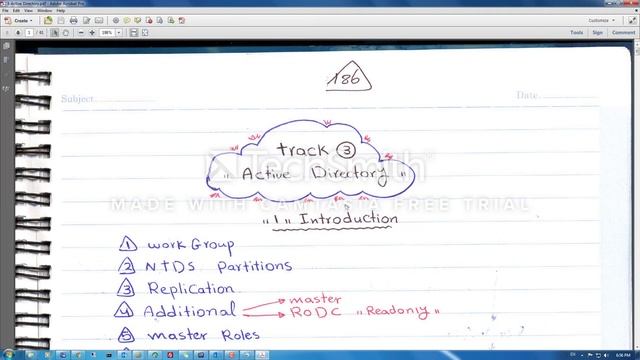 13-Active Directory.pdf - Adobe Acrobat Pro
Create
Customize
1 / 41
198%
Tools
Sign
Comment
186
Subject
Date
track 3
" Active Directory "
TechSmith
MADE WITH CAMTASIA FREE TRIAL
"1" Introduction
1 workGroup
2 NTDS Partitions
3 Replication
master
4 Additional RODC "Readonly"
5 master Roles
EN
6:56 PM